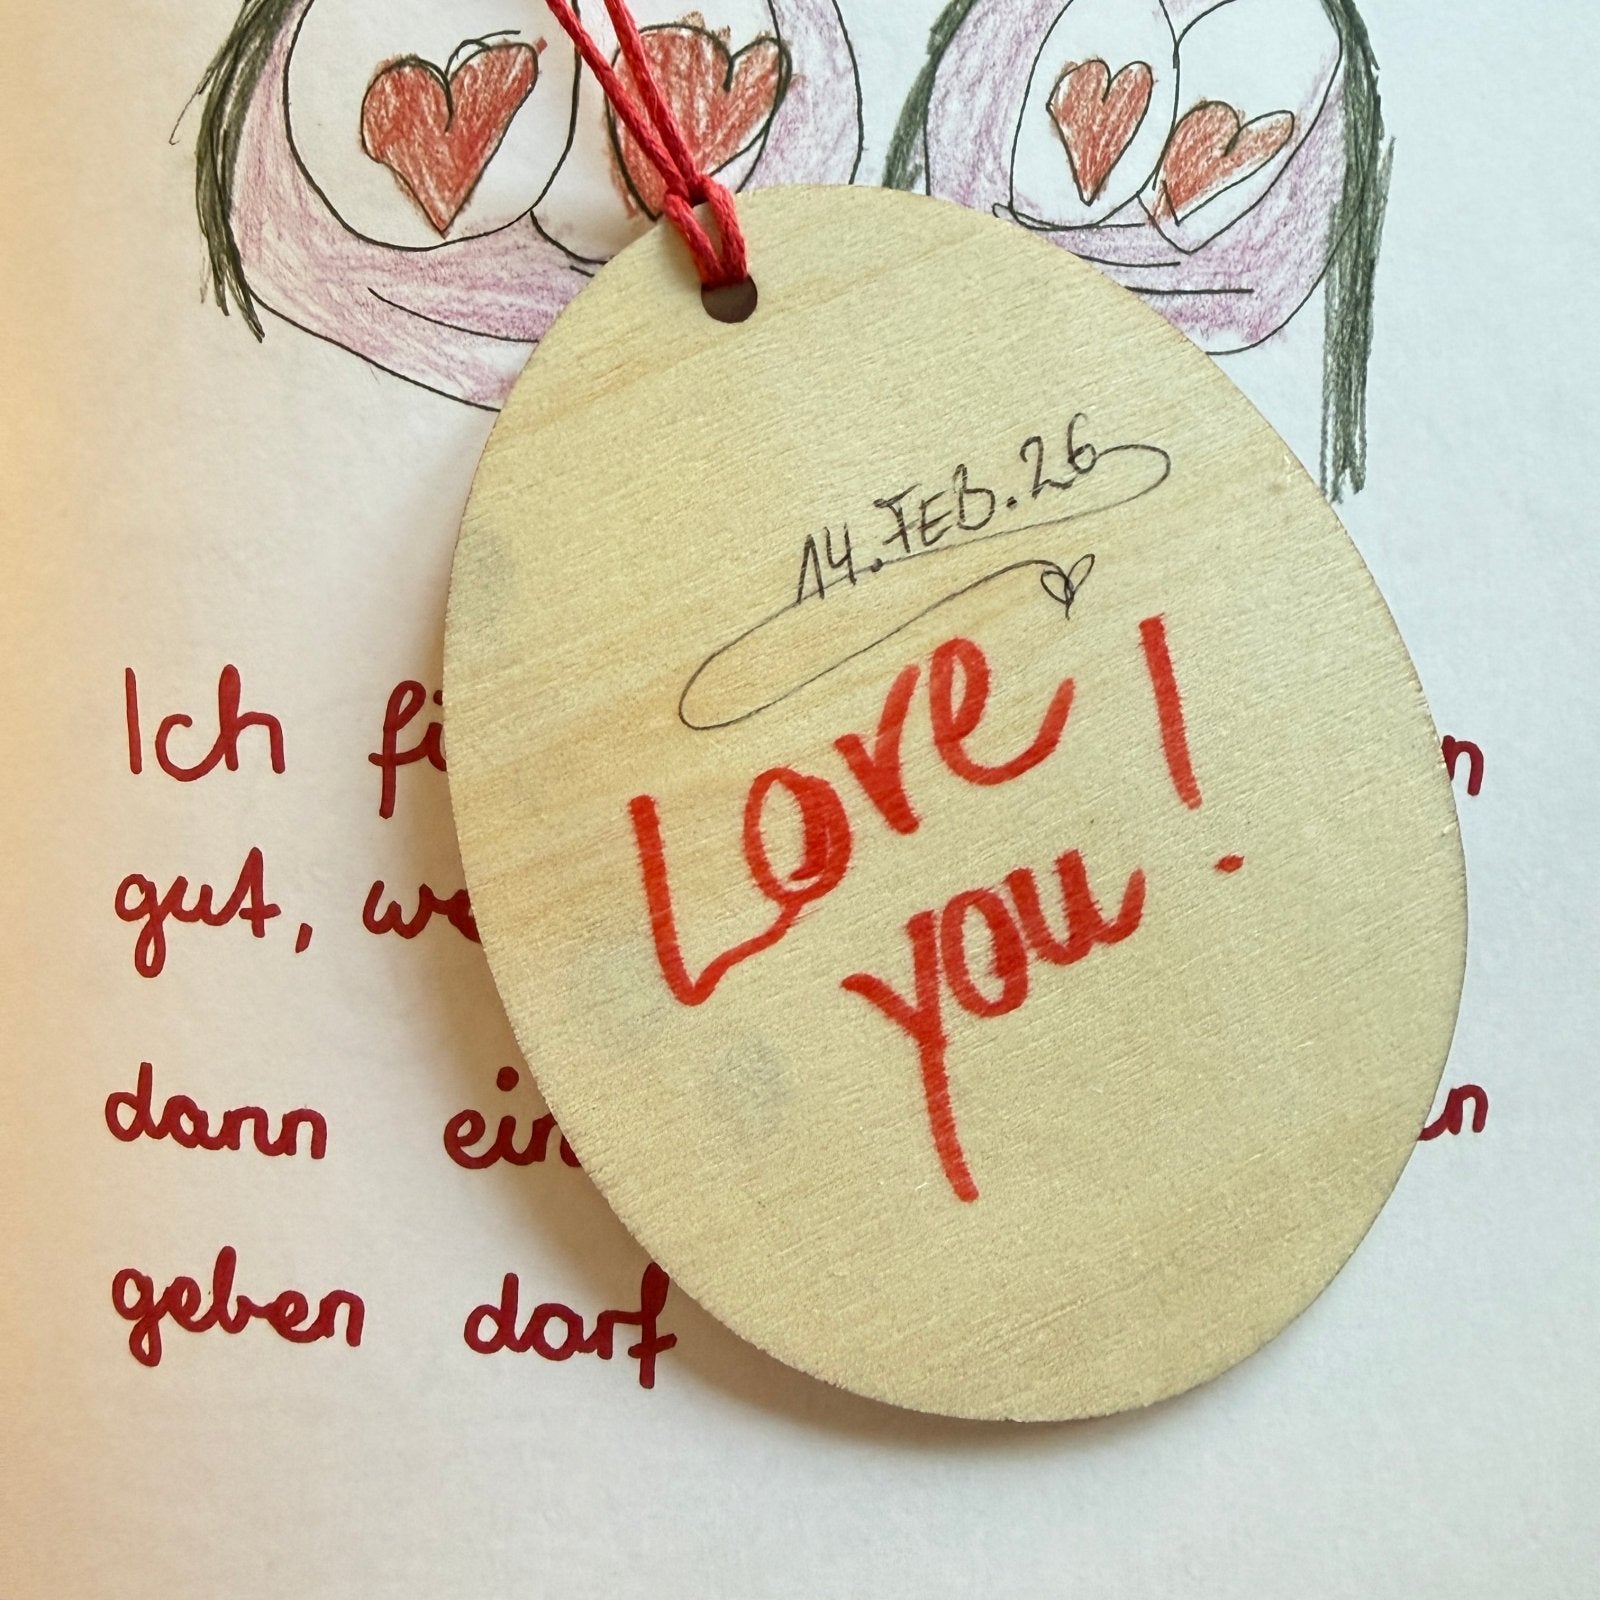 14.FEB.26
Love
you!
Ich
gut,
dann
geben darf